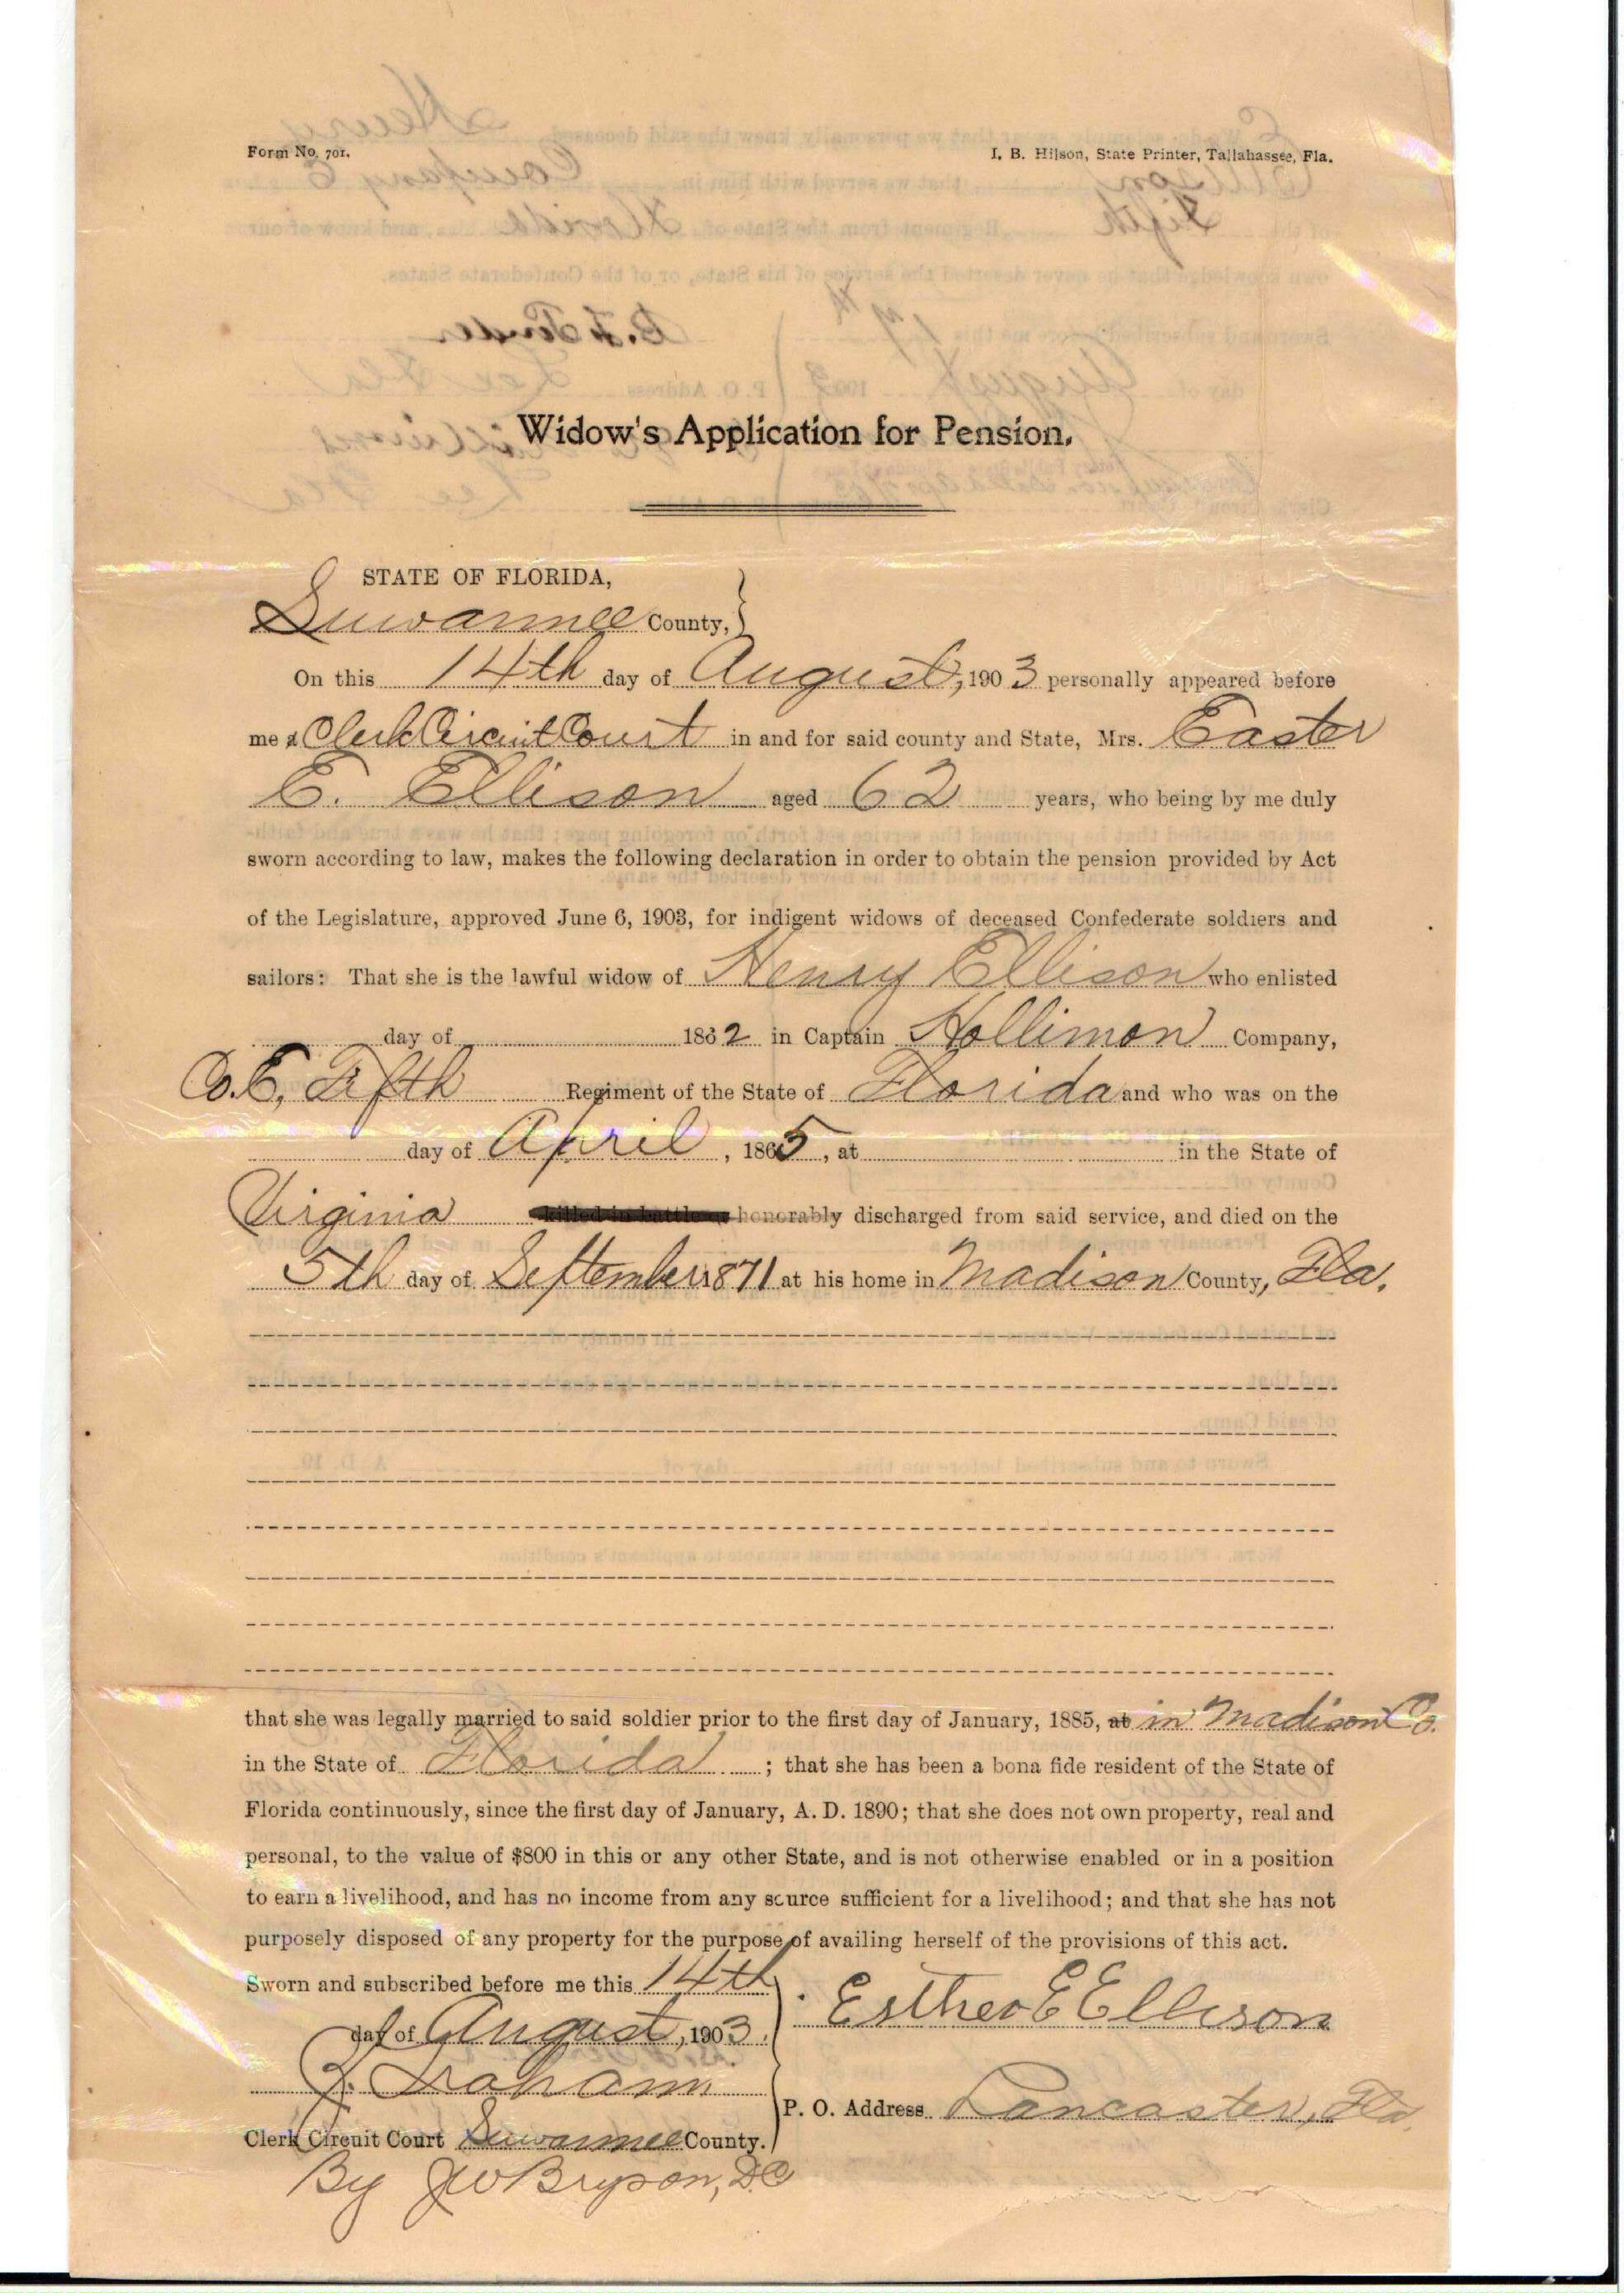 Form No. 701.
I. B. Hilson, State Printer, Tallahassee, Fla.
Widow's Application for Pension.
STATE OF FLORIDA,
Suwannee County,
On this 14th day of August, 1903 personally appeared before
me a Clerk Circuit Court in and for said county and State, Mrs. Easter
E. Ellison aged 62 years, who being by me duly
sworn according to law, makes the following declaration in order to obtain the pension provided by Act
of the Legislature, approved June 6, 1903, for indigent widows of deceased Confederate soldiers and
sailors: That she is the lawful widow of Henry Ellison who enlisted
day of 1862 in Captain Hollimon Company,
Co. E, Fifth Regiment of the State of Florida and who was on the
day of April, 1865, at in the State of
Virginia killed in battle or honorably discharged from said service, and died on the
5th day of September 1871 at his home in Madison County, Fla.
that she was legally married to said soldier prior to the first day of January, 1885, at in Madison Co.
in the State of Florida; that she has been a bona fide resident of the State of
Florida continuously, since the first day of January, A. D. 1890; that she does not own property, real and
personal, to the value of $800 in this or any other State, and is not otherwise enabled or in a position
to earn a livelihood, and has no income from any source sufficient for a livelihood; and that she has not
purposely disposed of any property for the purpose of availing herself of the provisions of this act.
Sworn and subscribed before me this 14th
day of August, 1903.
Esther E Ellison
P. O. Address Lancaster, Fla.
Clerk Circuit Court Suwannee County.
By J W Bryson, D.C